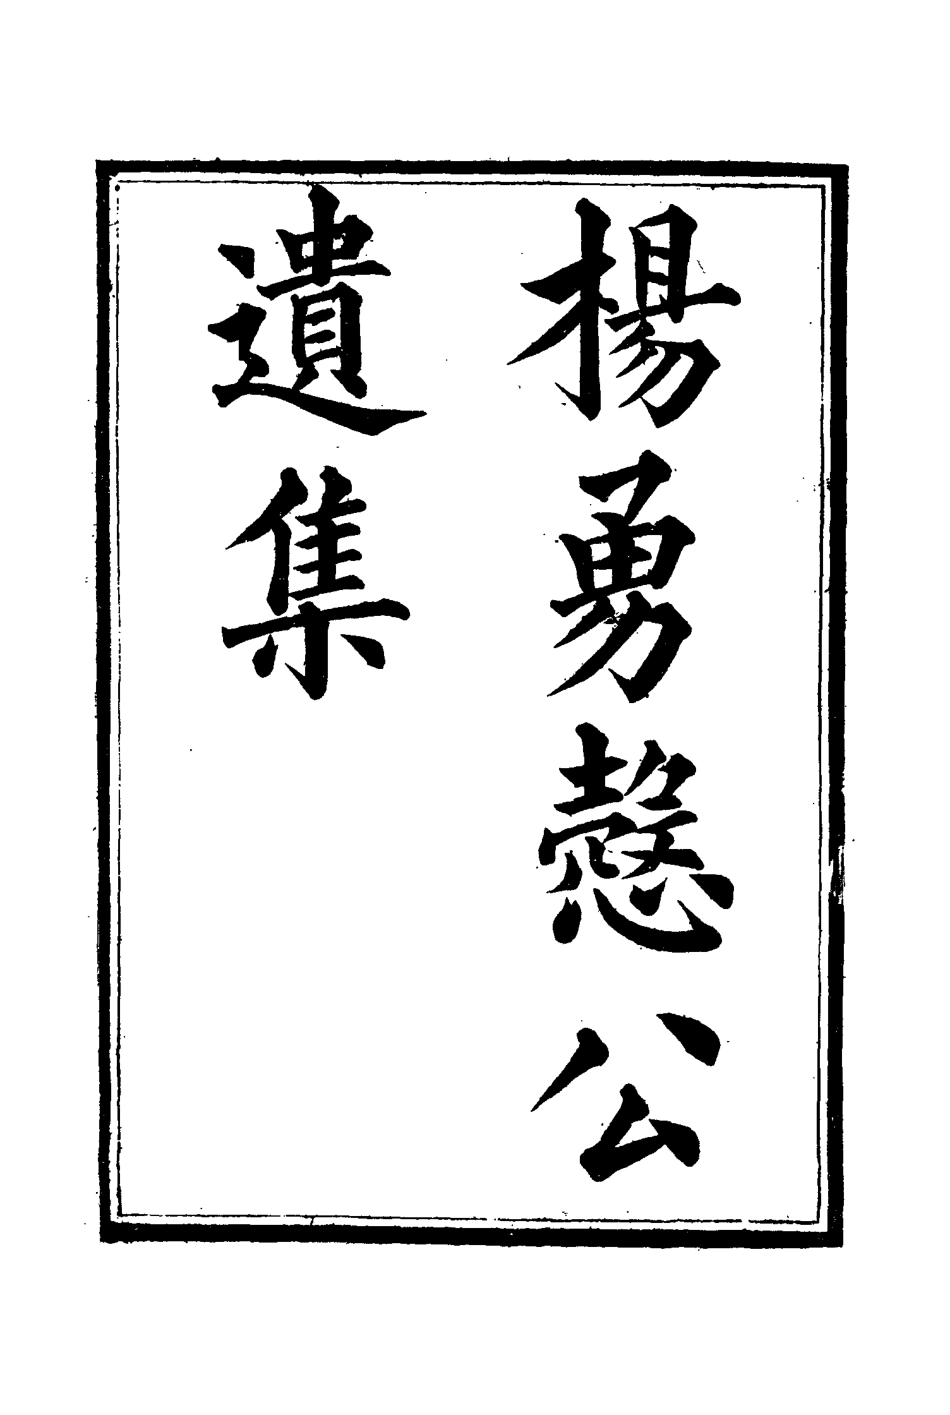 楊勇愨公
遺集